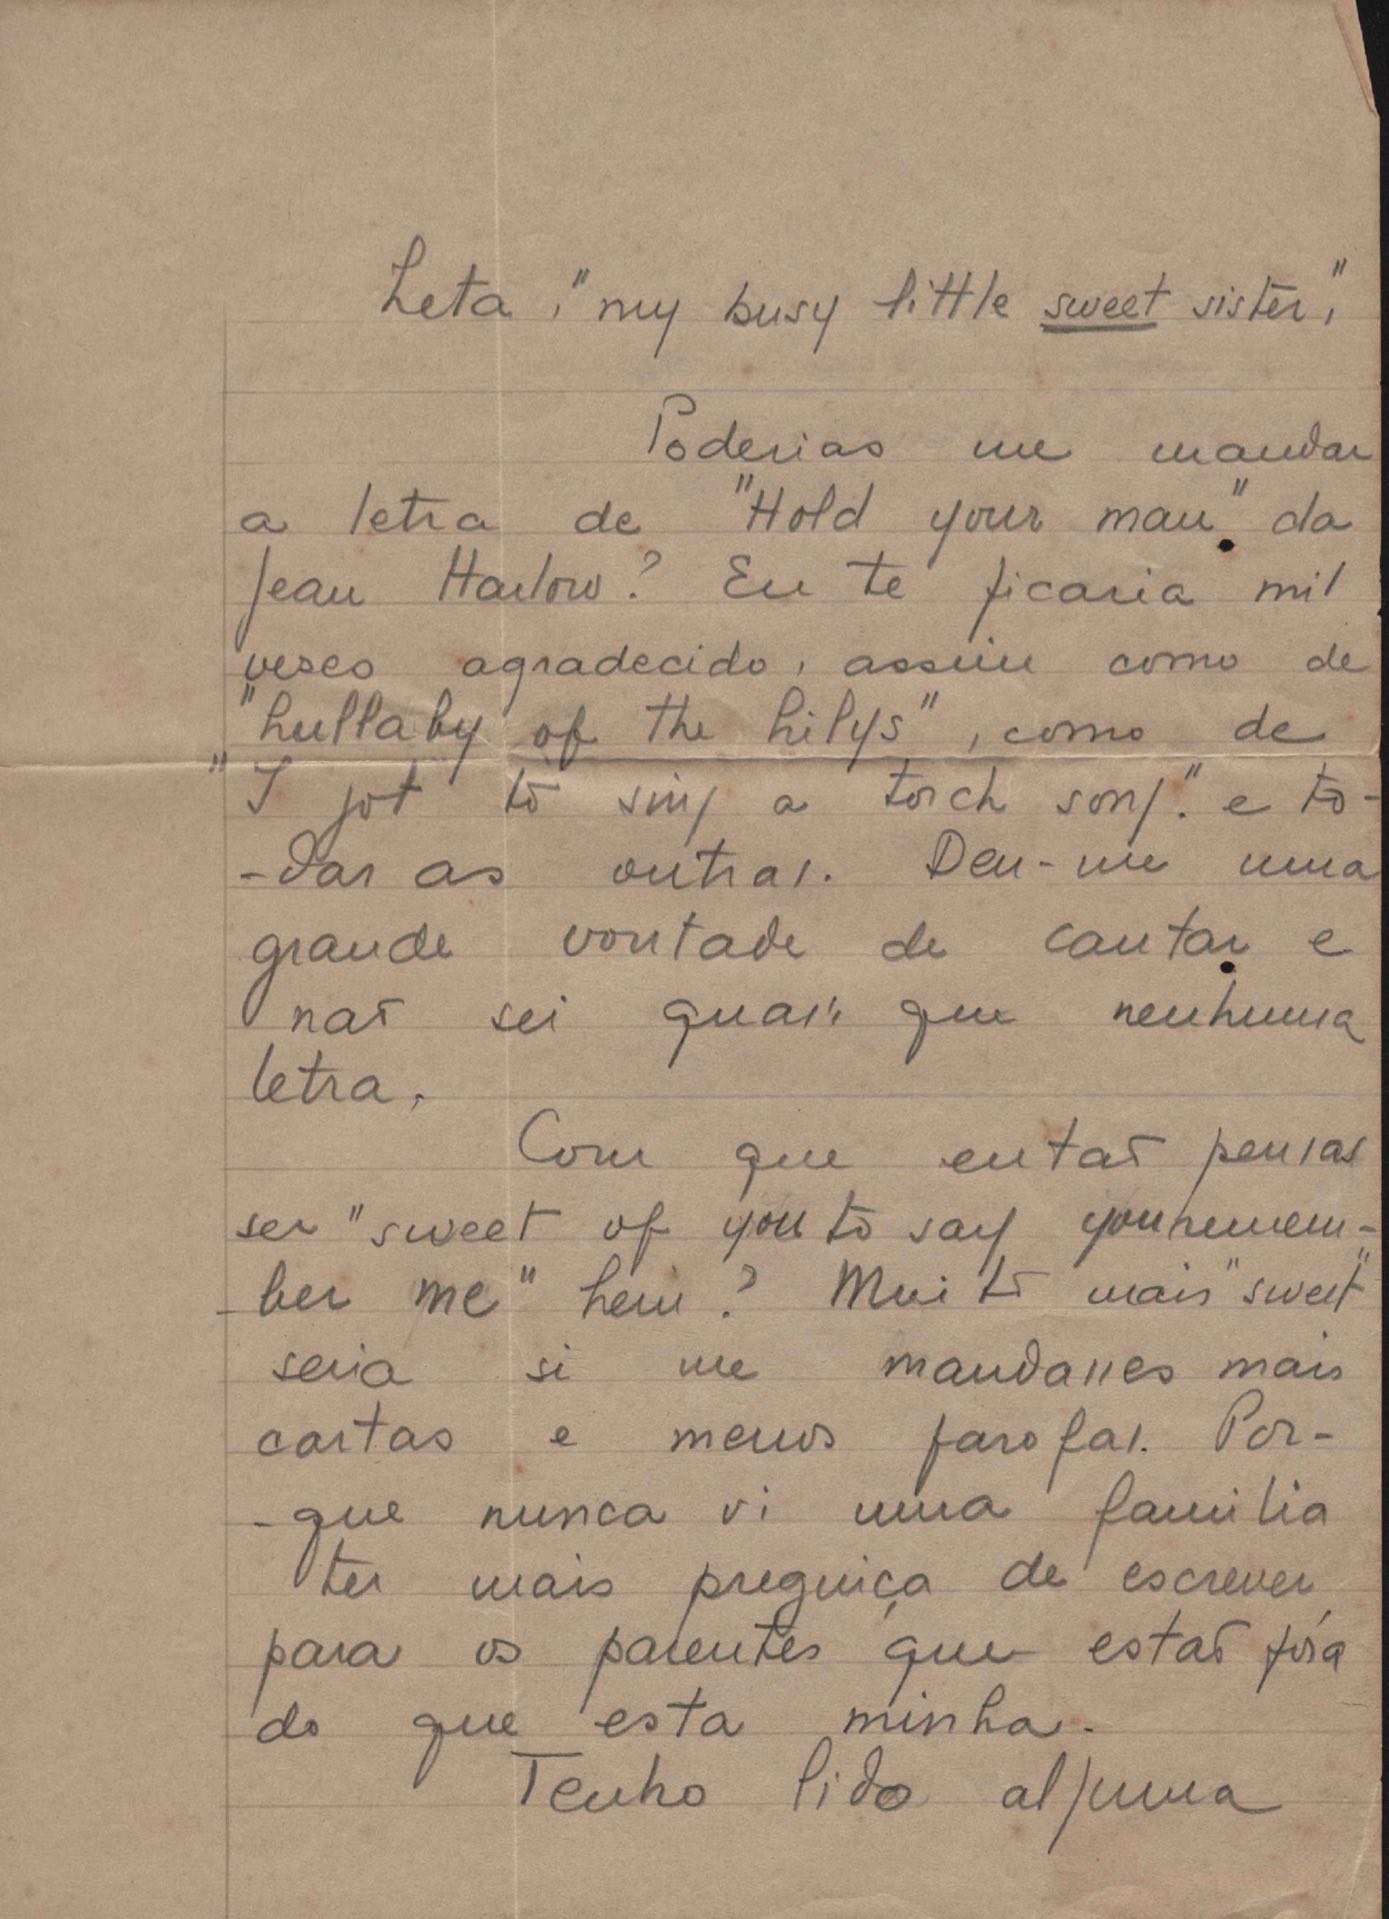 Leta, "my busy little sweet sister,"
Poderias me mandar
a letra de "Hold your man" da
Jean Harlow? Eu te ficaria mil
veses agradecido, assim como de
"Lullaby of the Lilys", como de
"I got to sing a torch song". e to-
-das as outras. Deu-me uma
grande vontade de cantar e
naõ sei quasi que nenhuma
letra.
Com que entaõ pensas
ser "sweet of you to say you remem-
-ber me" hein? Muito mais "sweet"
seria si me mandasses mais
cartas e menos farofas. Por-
-que nunca vi uma familia
ter mais preguiça de escrever
para os parentes que estaõ fóra
do que esta minha.
Tenho lido alguma